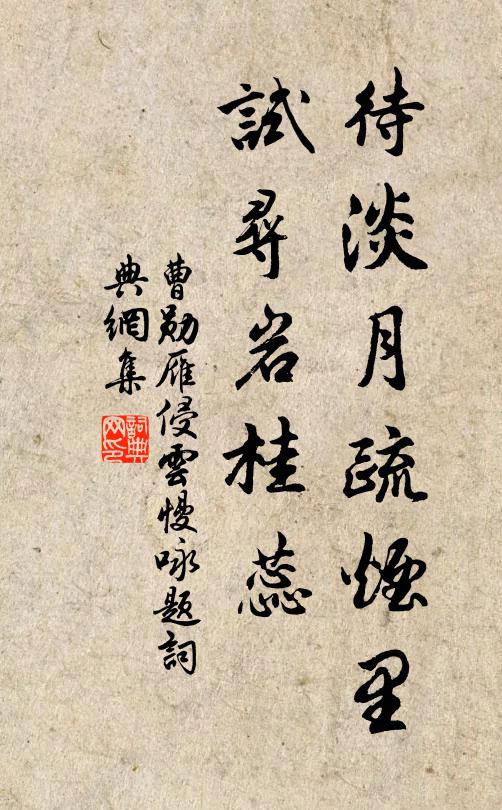 待淡月疏煙里
試尋岩桂蕊
曹勛雁侵雲慢咏題詞
典網集
詞典網印